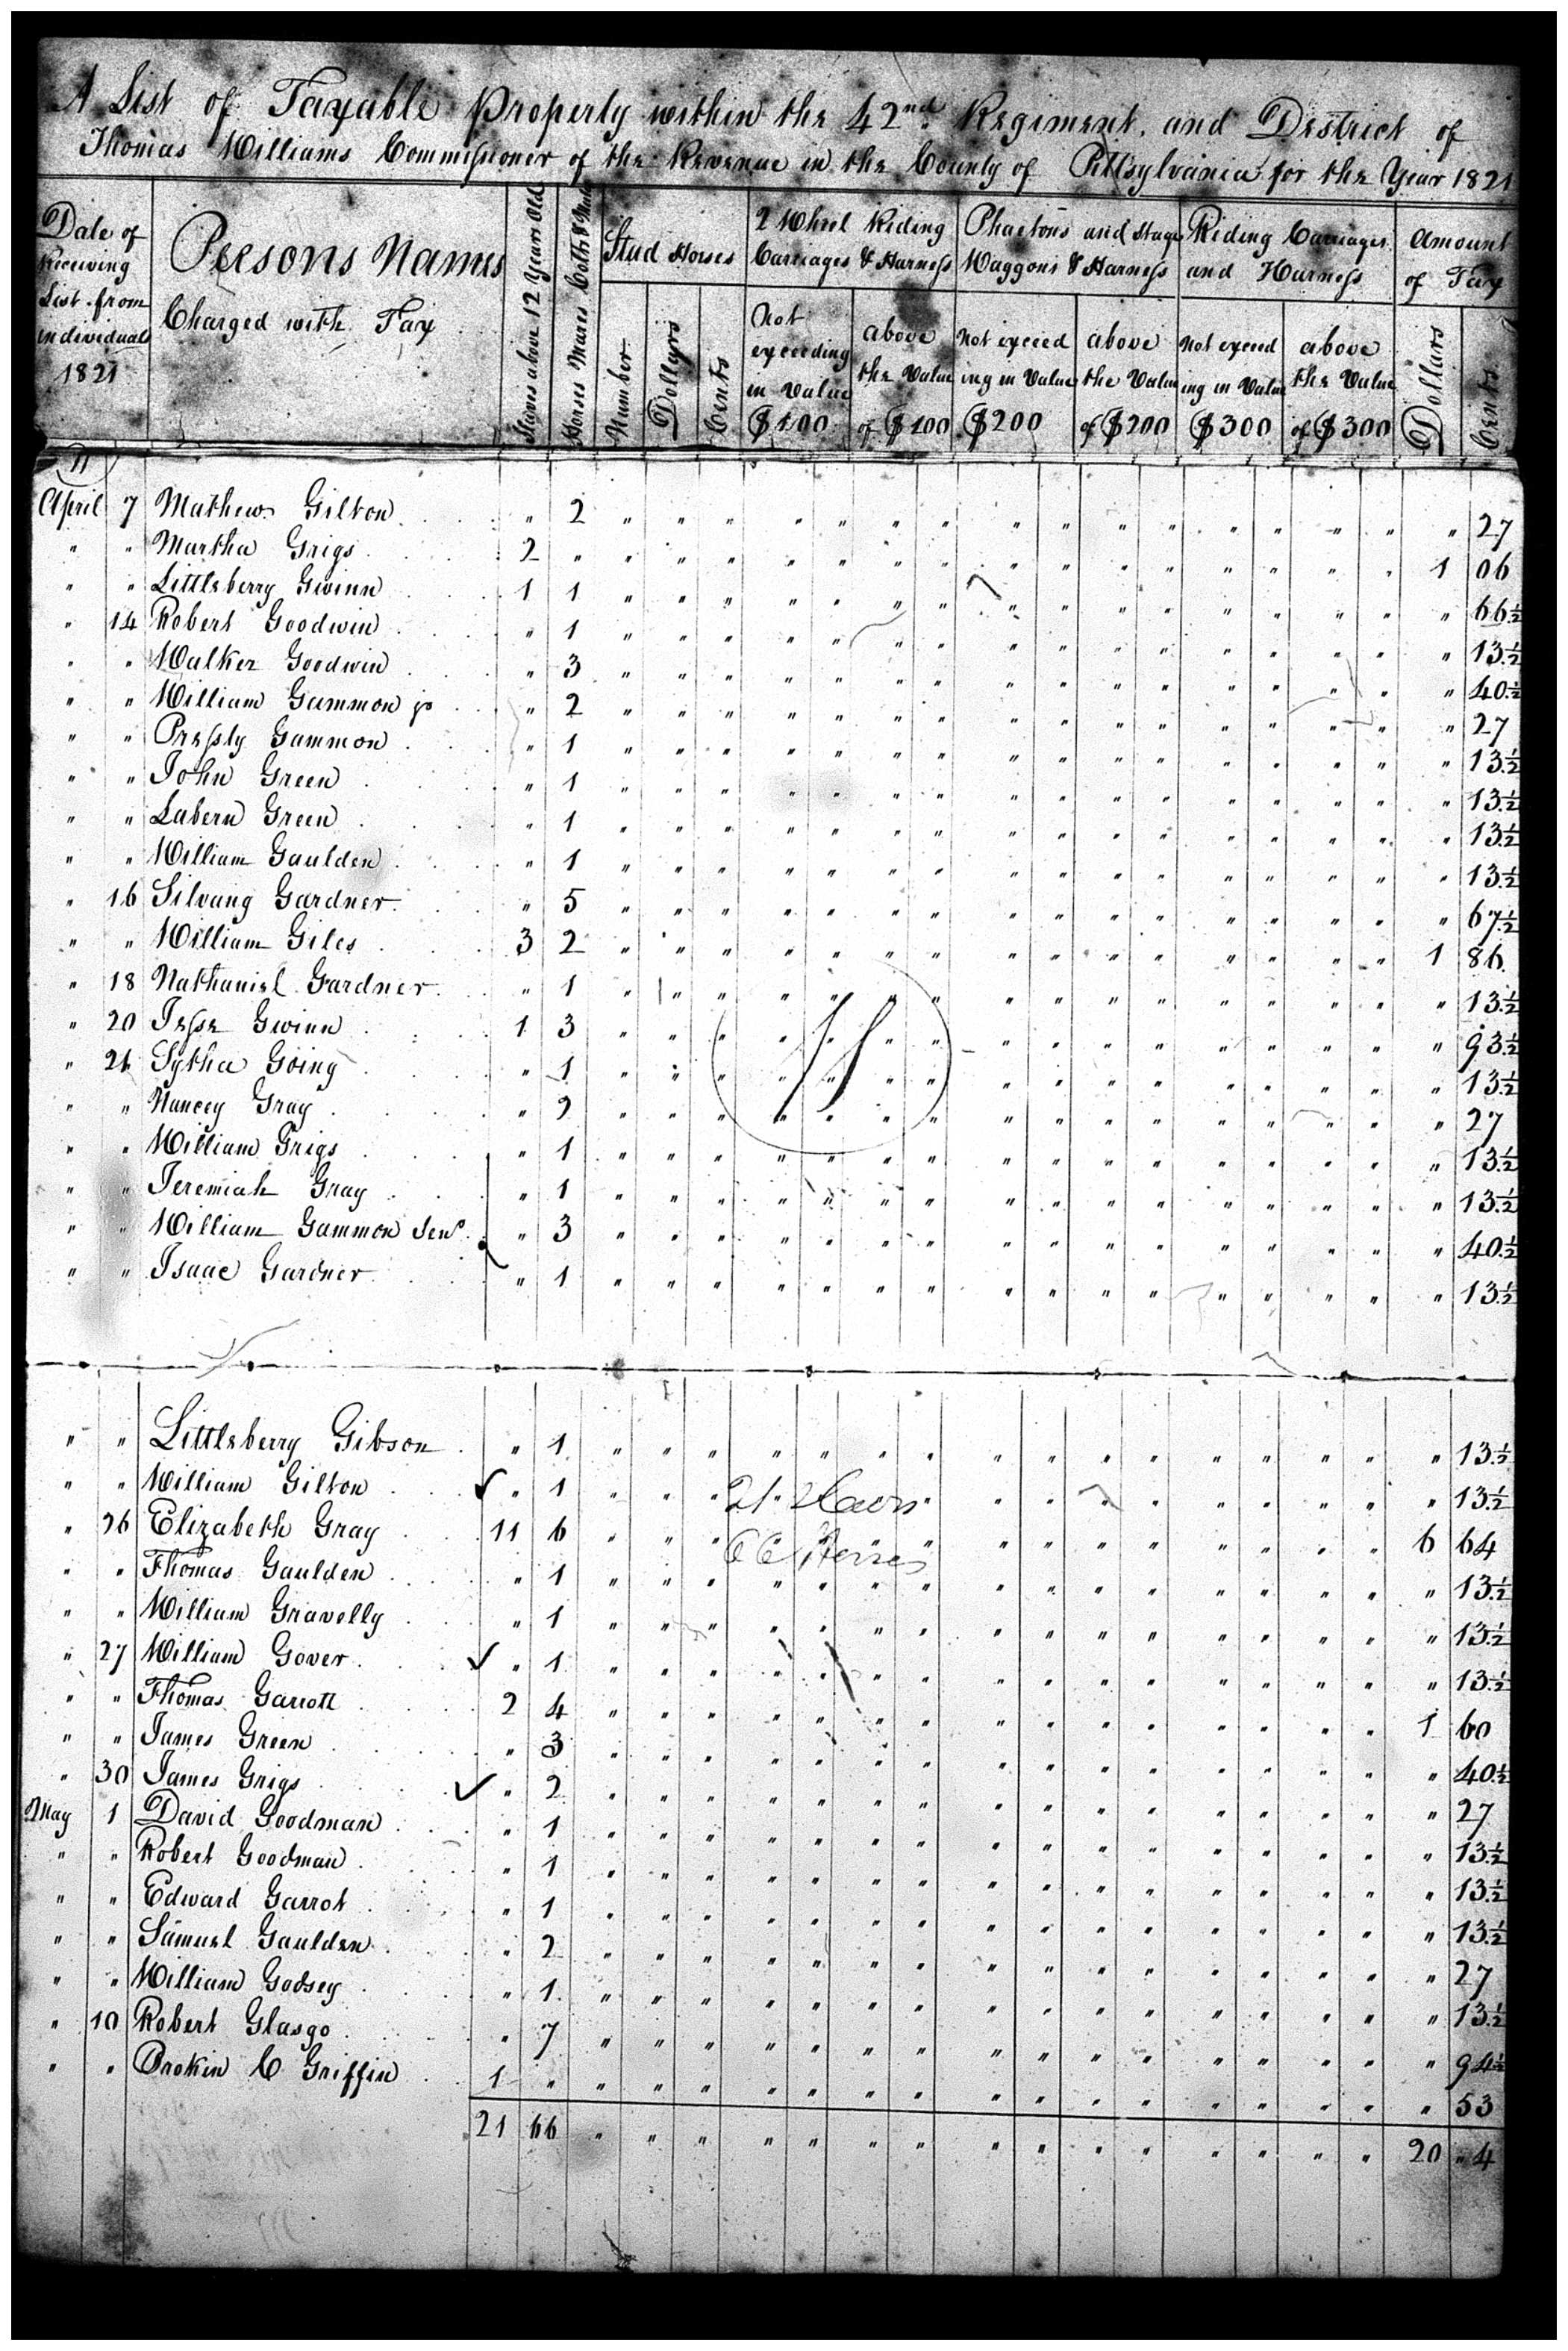 A List of Taxable Property within the 42nd Regiment, and District of
Thomas Williams Commissioner of the Revenue in the County of Pittsylvania for the Year 1821
Date of Receiving List from individuals 1821
Persons Names Charged with Tax
Slaves above 12 Years Old
Horses Mares Colts & Mules
Stud Horses
Number
Dollars
Cents
2 Wheel Riding Carriages & Harness
Not exceeding in Value $100
above the Value of $100
Phaetons and Stage Waggons & Harness
Not exceeding in Value $200
above the Value of $200
Riding Carriages and Harness
Not exceeding in Value $300
above the Value of $300
Amount of Tax
Dollars
Cents
April 7 Mathew Gilton " 2 " 27
" " Martha Grigs 2 " 1 06
" " Littleberry Gwinn 1 1 " 66½
" 14 Robert Goodwin " 1 " 13½
" " Walker Goodwin " 3 " 40½
" " William Gammon jr " 2 " 27
" " Pressly Gammon " 1 " 13½
" " John Green " 1 " 13½
" " Labern Green " 1 " 13½
" " William Gaulden " 1 " 13½
" 16 Silvang Gardner " 5 " 67½
" " William Giles 3 2 1 86
" 18 Nathaniel Gardner " 1 " 13½
" 20 Jesse Gwinn 1 3 " 93½
" 21 Sytha Going " 1 " 13½
" " Nancey Gray " 2 " 27
" " William Grigs " 1 " 13½
" " Jeremiah Gray " 1 " 13½
" " William Gammon Senr " 3 " 40½
" " Isaac Gardner " 1 " 13½
" " Littleberry Gibson " 1 " 13½
" " William Gilton " 1 " 13½
21
" 26 Elizabeth Gray 11 6 6 64
66 Horses
" " Thomas Gaulden " 1 " 13½
" " William Gravelly " 1 " 13½
" 27 William Gover " 1 " 13½
" " Thomas Garrott 2 4 1 60
" " James Green " 3 " 40½
" 30 James Grigs " 2 " 27
May 1 David Goodman " 1 " 13½
" " Robert Goodman " 1 " 13½
" " Edward Garrot " 1 " 13½
" " Samuel Gaulden " 2 " 27
" " William Godsey " 1 " 13½
" 10 Robert Glasgo " 7 " 94½
" " Brokin C Griffin 1 " " 53
21 66 20 " 4